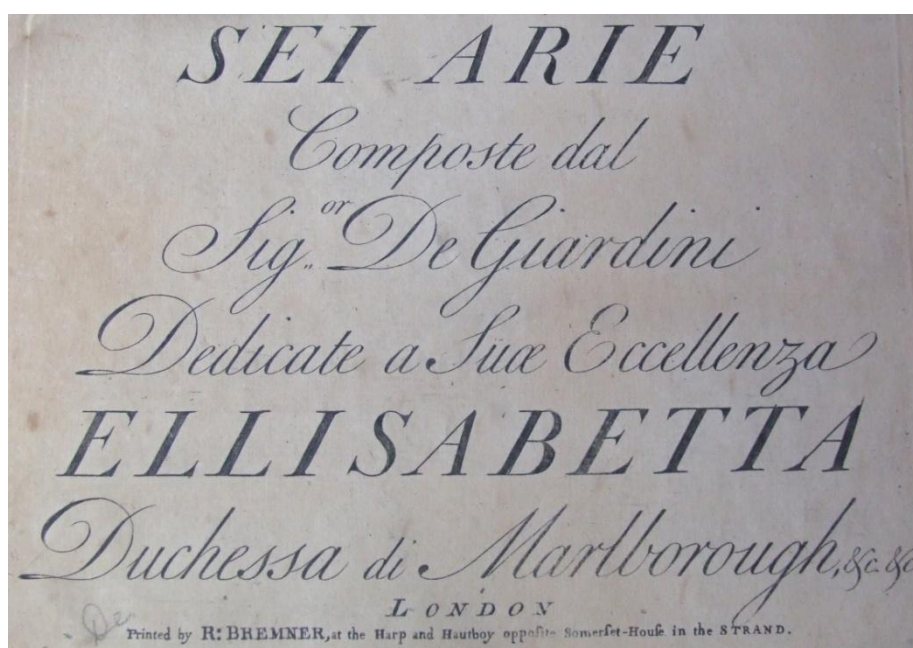 SEI ARIE
Composte dal
Sig.or De Giardini
Dedicate a Suæ Eccellenza
ELLISABETTA
Duchessa di Marlborough, &c. &c
LONDON
Printed by Rt: BREMNER, at the Harp and Hautboy opposite Somerset-House in the STRAND.